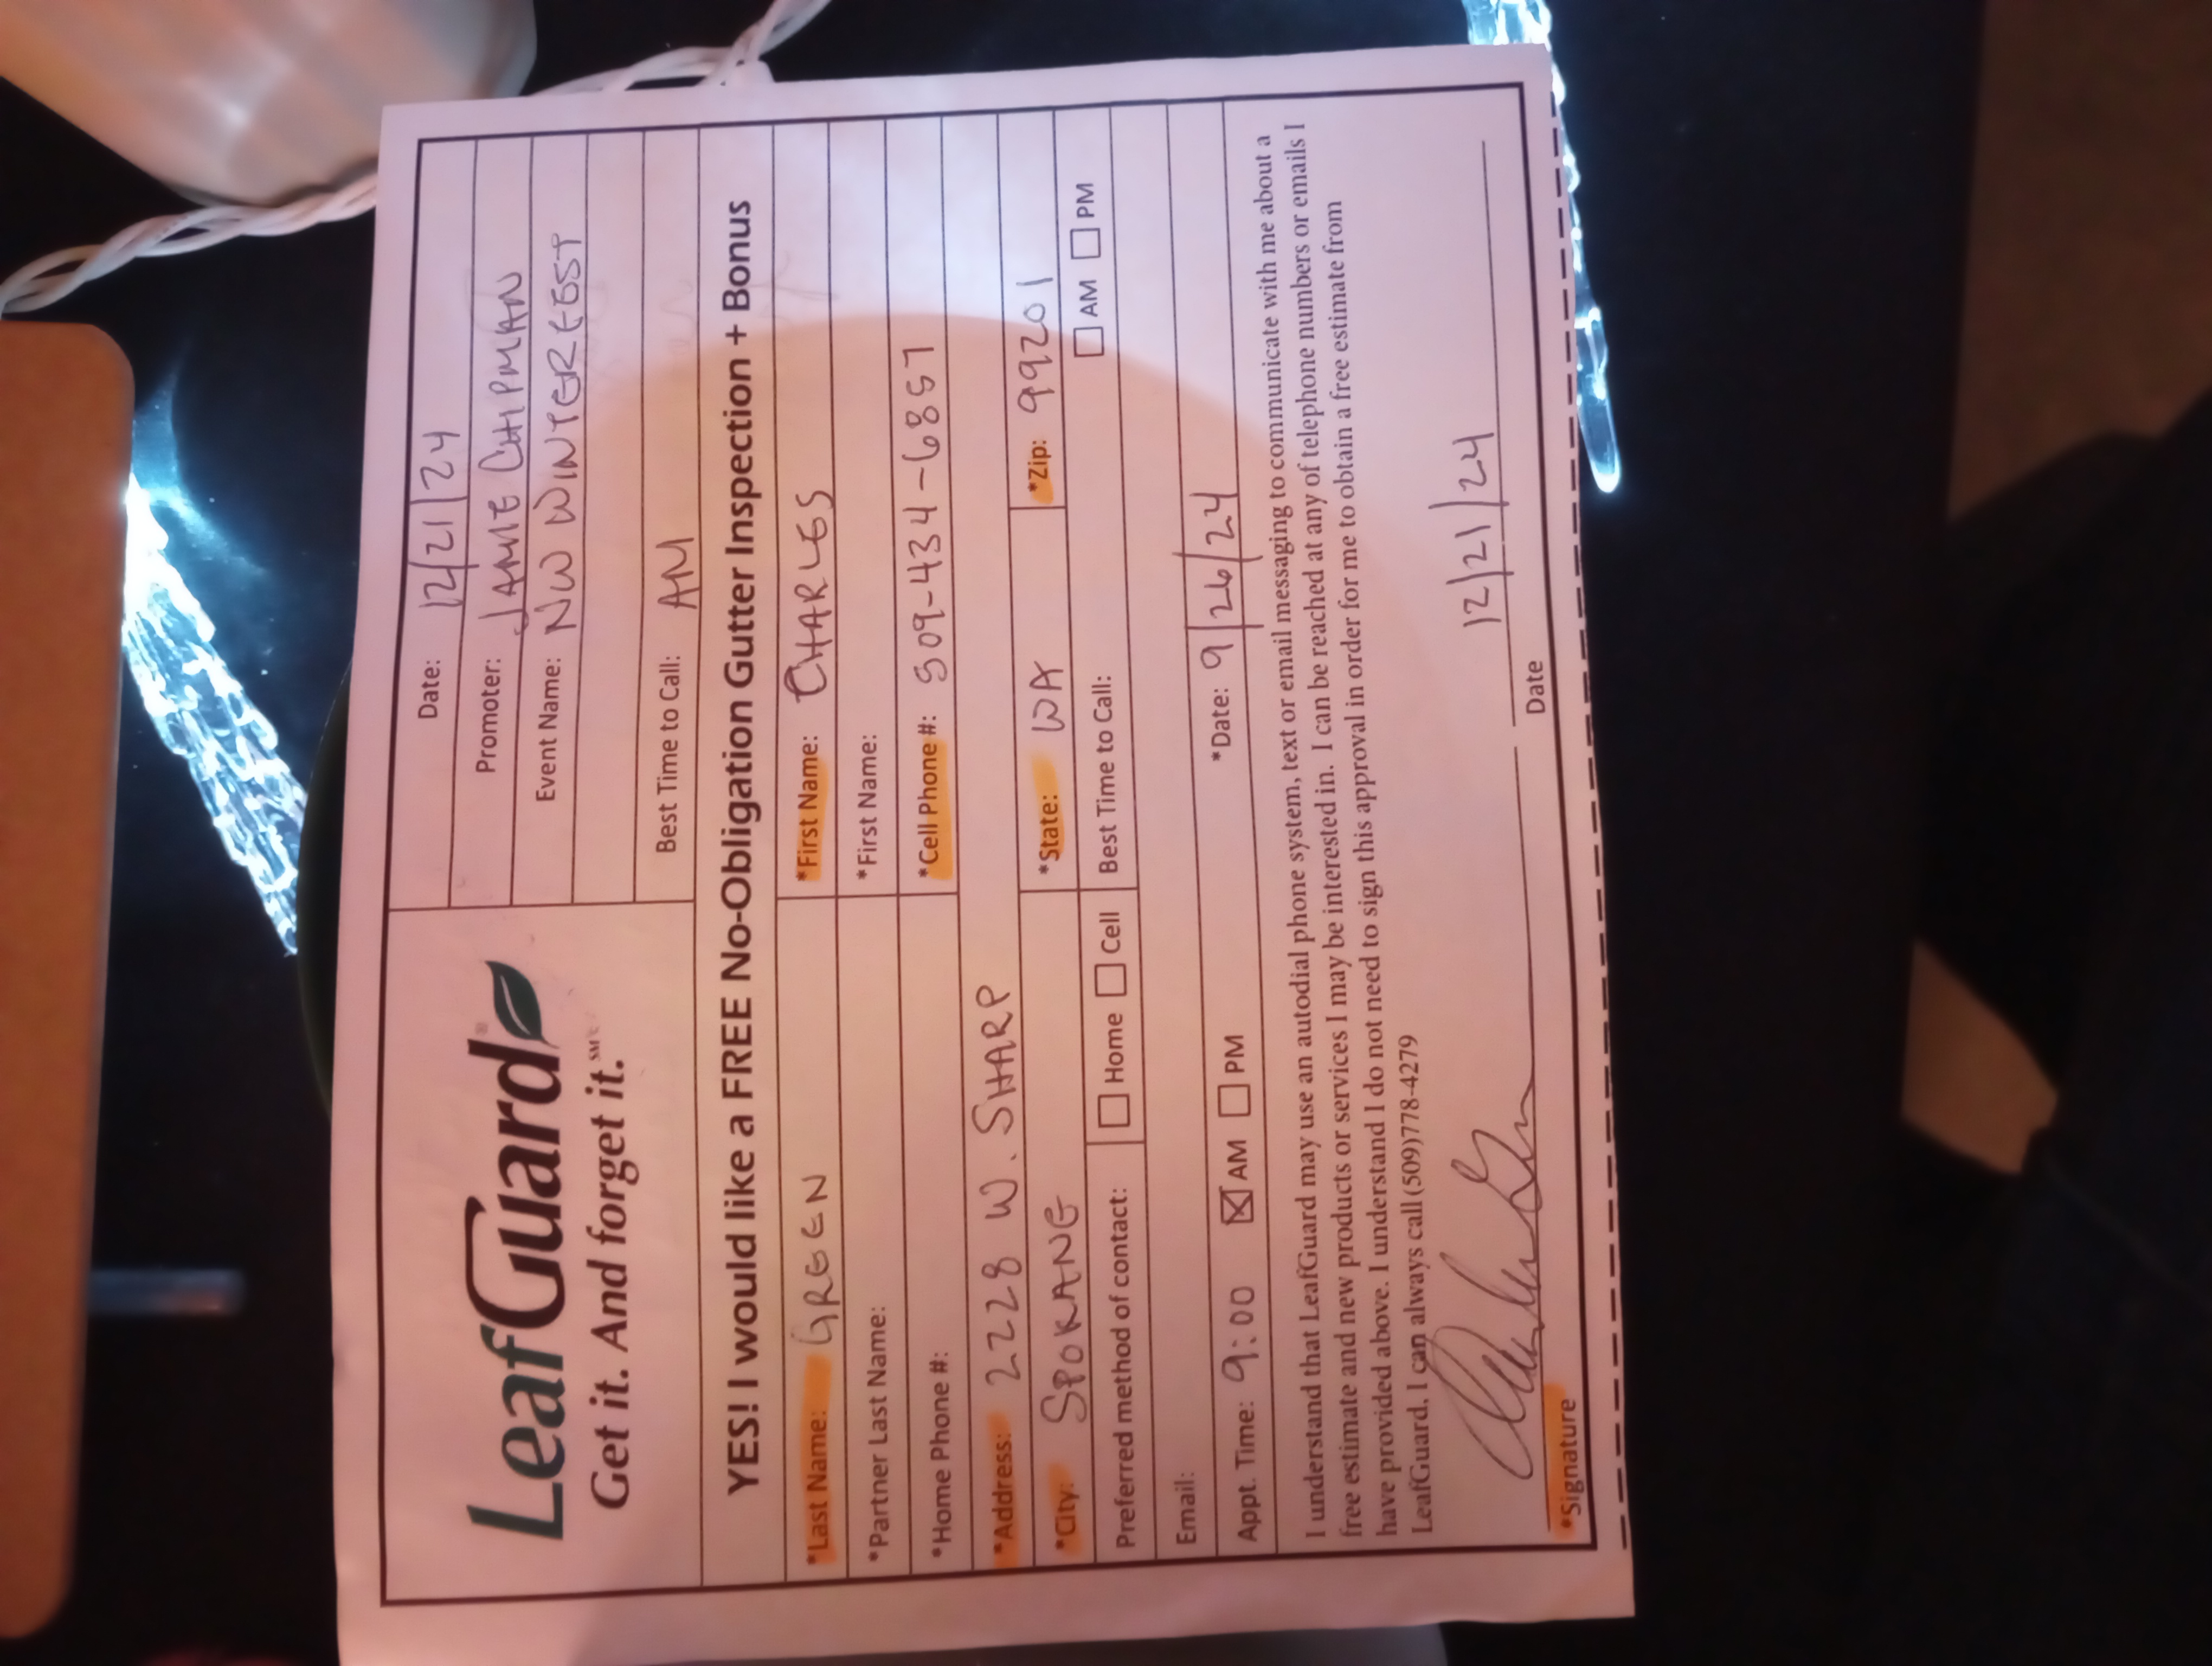 LeafGuard®
Get it. And forget it.℠
Date: 12/21/24
Promoter: JAMIE CHIPMAN
Event Name: NW WINTERFEST
Best Time to Call: AM
YES! I would like a FREE No-Obligation Gutter Inspection + Bonus
*Last Name: GREEN *First Name: CHARLES
*Partner Last Name: *First Name:
*Home Phone #: *Cell Phone #: 509-434-6857
*Address: 2228 W. SHARP
*City: SPOKANE *State: WA *Zip: 99201
Preferred method of contact: ☐ Home ☐ Cell Best Time to Call: ☐ AM ☐ PM
Email:
Appt. Time: 9:00 ☒ AM ☐ PM *Date: 9/26/24
I understand that LeafGuard may use an autodial phone system, text or email messaging to communicate with me about a
free estimate and new products or services I may be interested in. I can be reached at any of telephone numbers or emails I
have provided above. I understand I do not need to sign this approval in order for me to obtain a free estimate from
LeafGuard, I can always call (509)778-4279
12/21/24
*Signature Date